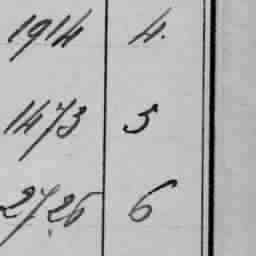 1914 4.
1473 5
2726 6